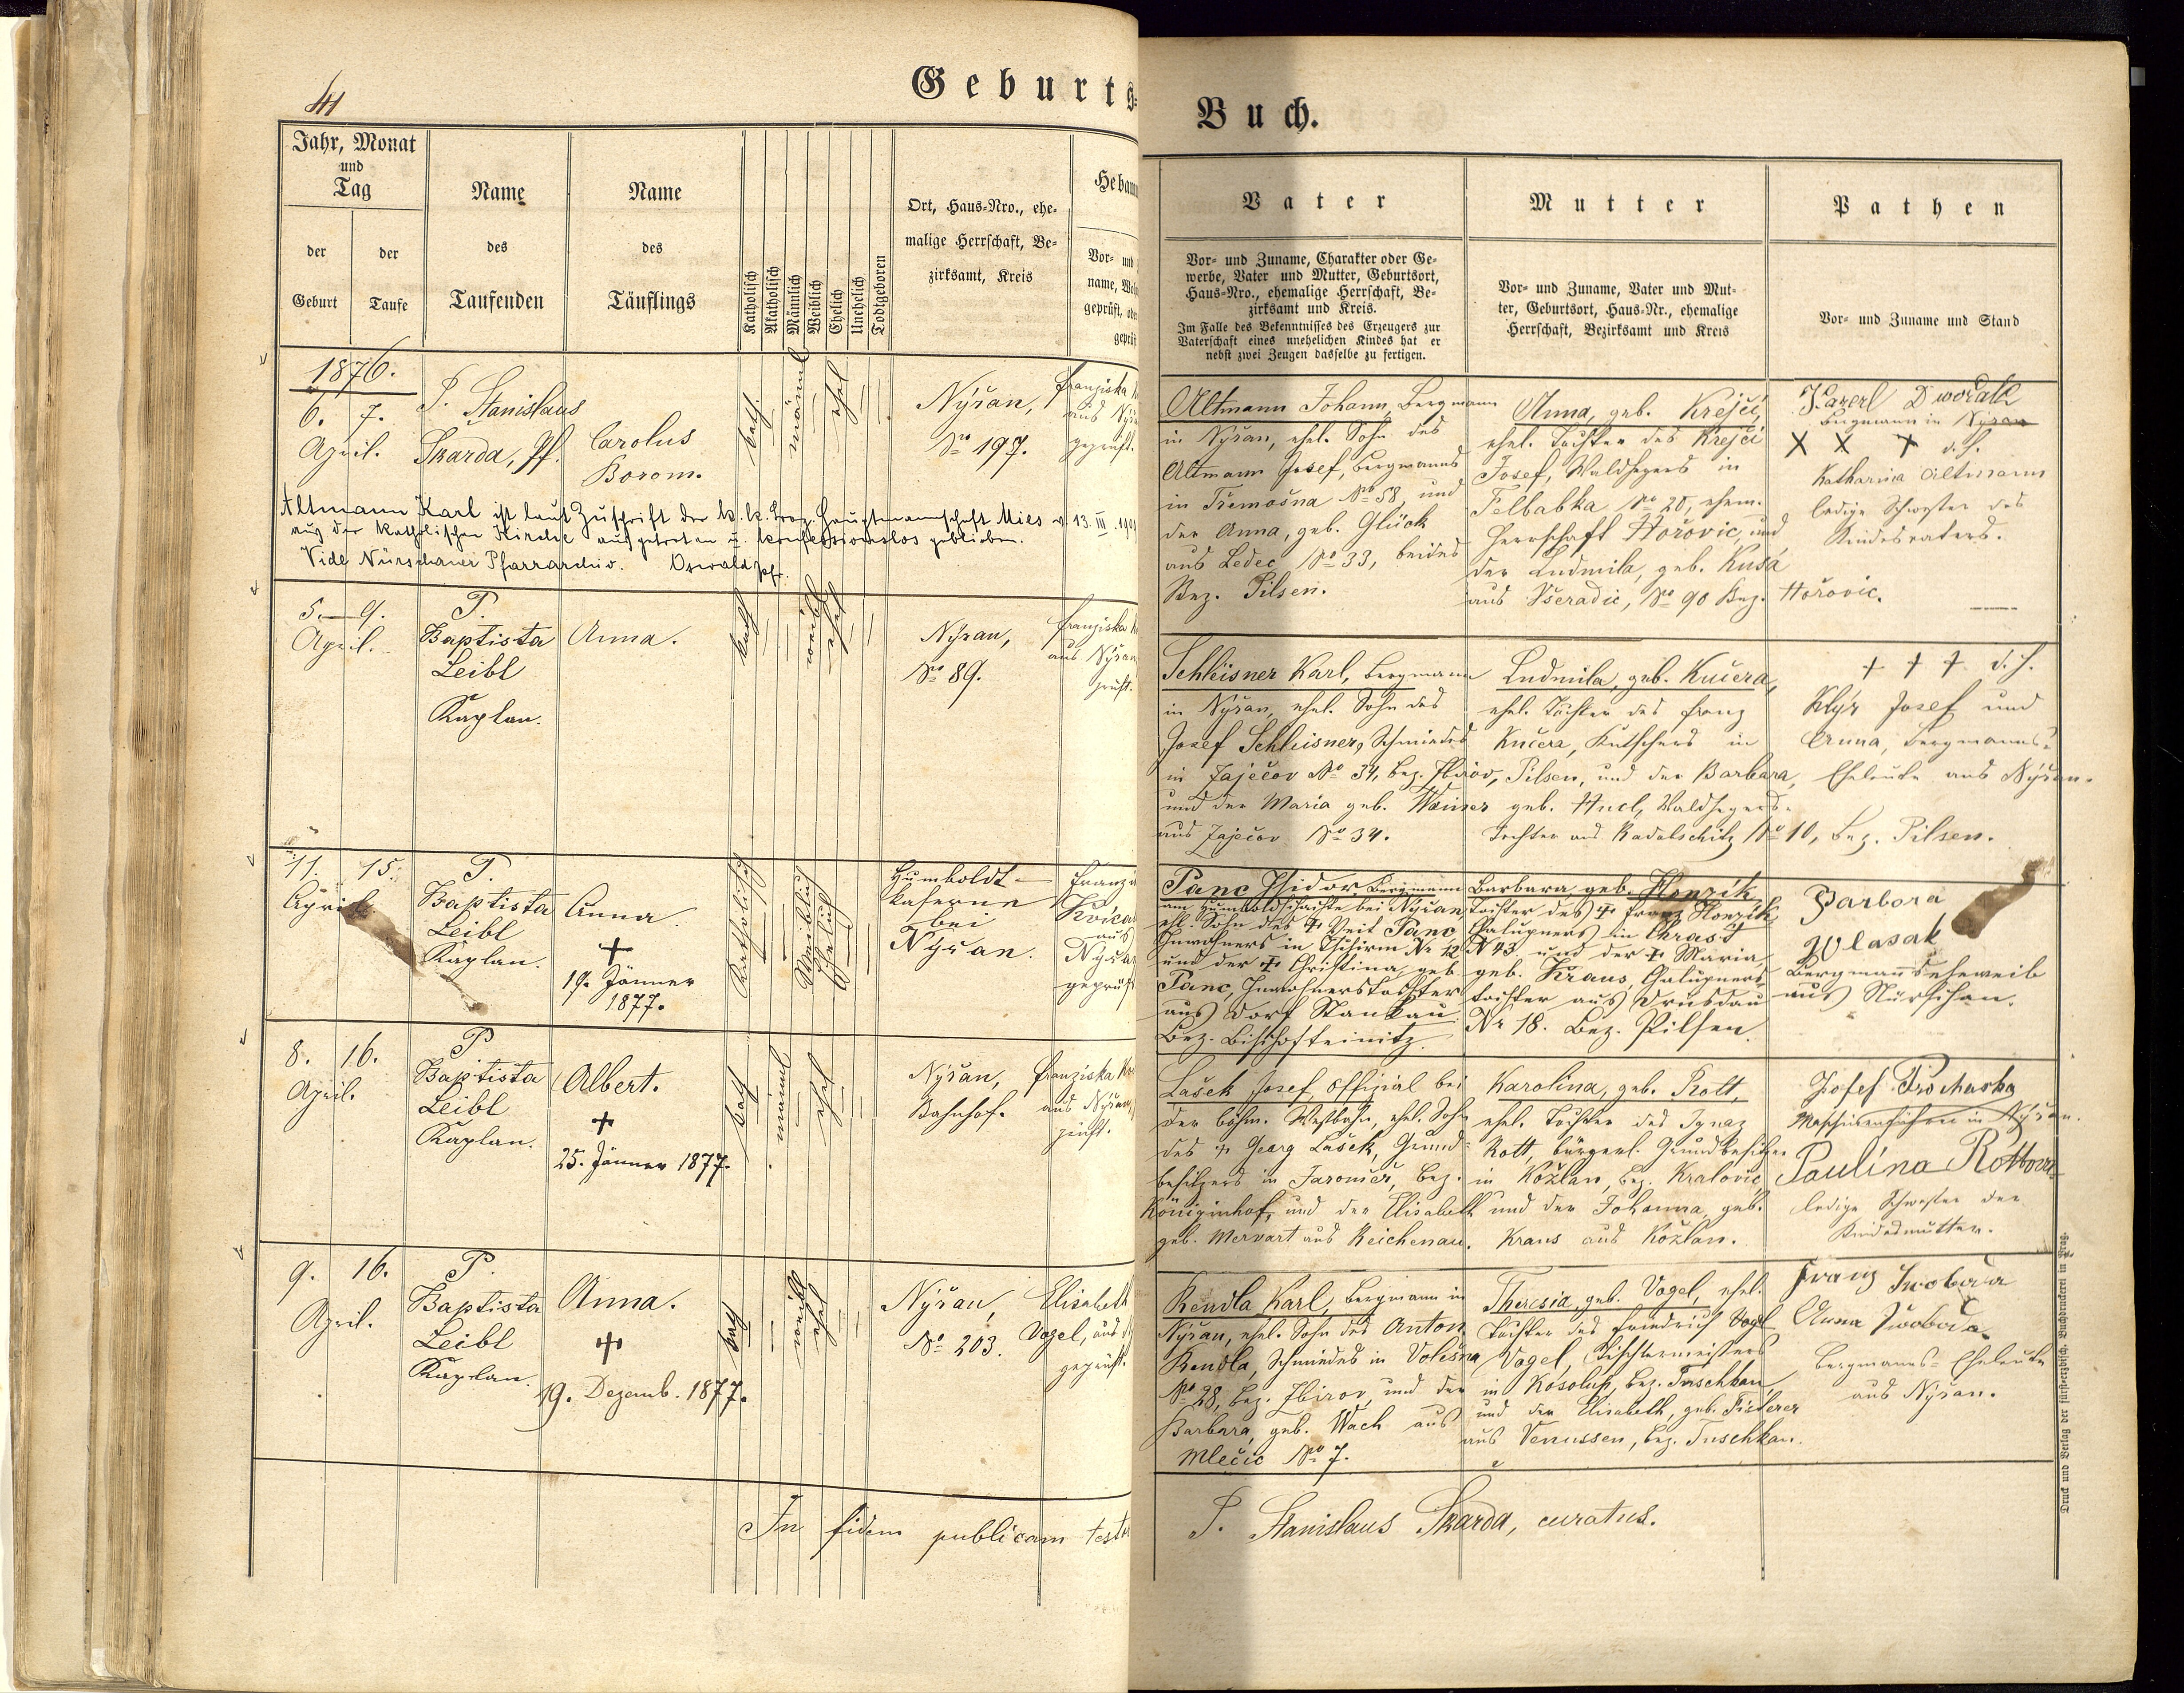 41
Geburts-
Buch.
Jahr, Monat
und
Tag
der
Geburt
der
Taufe
Name
des
Taufenden
Name
des
Täuflings
Katholisch
Akatholisch
Männlich
Weiblich
Ehelich
Unehelich
Todtgeboren
Ort, Haus-Nro., ehe-
malige Herrschaft, Be-
zirksamt, Kreis
Hebam
Vor- und
name,
geprüft, oder
geprüft
Vater
Vor- und Zuname, Charakter oder Ge-
werbe, Vater und Mutter, Geburtsort,
Haus-Nro., ehemalige Herrschaft, Be-
zirksamt und Kreis.
Im Falle des Bekenntnisses des Erzeugers zur
Vaterschaft eines unehelichen Kindes hat er
nebst zwei Zeugen dasselbe zu fertigen.
Mutter
Vor- und Zuname, Vater und Mut-
ter, Geburtsort, Haus-Nr., ehemalige
Herrschaft, Bezirksamt und Kreis
Pathen
Vor- und Zuname und Stand
1876.
6. 7.
April.
P. Stanislaus
Skarda, Pf.
Carolus
Borom.
kath.
männl
ehel
Nýřan,
No 197.
Franziska
aus Nýř
geprüft.
Altmann Johann, Bergmann
in Nýřan, ehel. Sohn des
Altmann Josef, Bergmanns
in Třemošna No 58, und
der Anna, geb. Glück
aus Ledec No 33, beides
Bez. Pilsen.
Anna, geb. Krejčí,
ehel. Tochter des Krejčí
Josef, Waldhegers in
Felbabka No 20, ehem.
Herrschaft Hořovic, und
der Ludmila, geb. Kusá
aus Všeradic, No 90 Bez. Hořovic.
Karel Dwořak
Bergmann in Nýřan
X X X d. h.
Katharina Altmann
ledige Schwester des
Kindesvaters.
Altmann Karl ist laut Zuschrift der k. k. Bez. Hauptmannschaft Mies v. 13. III
aus der katholischen Kirche ausgetreten u. konfessionslos geblieben.
Vide Nürschaner Pfarrarchiv. Oswald Pfr.
5. 9.
April.
P.
Baptista
Leibl
Kaplan.
Anna.
kath
weibl
ehel
Nýřan,
No 89.
Franziska
aus Nýřan
prüft.
Schleisner Karl, Bergmann
in Nýřan, ehel. Sohn des
Josef Schleisner, Schmiedes
in Zaječov No 34, Bez. Zbirov,
und der Maria geb. Wainer
aus Zaječov No 34.
Ludmila, geb. Kučera,
ehel. Tochter des Franz
Kučera, Kutschers in
Pilsen, und der Barbara,
geb. Hucl, Waldhegers-
Tochter aus Kadelschitz No 10, Bez. Pilsen.
† † † d. h.
Klýr Josef und
Anna, Bergmanns-
Eheleute aus Nýřan.
11. 15.
April.
P.
Baptista
Leibl
Kaplan.
Anna
+
19. Jänner
1877.
Katholisch
Weiblich
Ehelich
Humboldt-
kaserne
bei
Nyřan.
Kvíca
aus
Nyřa
geprüft
Panc Isidor Bergmann
am Humboldtschachte bei Nyřan,
ehl. Sohn des + Veit Panc
Inwohners in Tschirm Nr 12
und der + Christina geb
Panc, Inwohnerstochter
aus Dorf Stankau
Bez. Bischofteinitz.
Barbara geb. Honzik
Tochter des + Franz Honzik,
Chalupners in Chrast
N 43 und der + Maria
geb. Kraus, Chalupners-
tochter aus Drusdau
Nr 18. Bez. Pilsen.
Barbora
Wlasak
Bergmannseheweib
aus Nürschan.
8. 16.
April.
P
Baptista
Leibl
Kaplan.
Albert.
+
25. Jänner 1877.
kath
männl
ehel
Nýřan,
Bahnhof.
Franziska
aus Nýřan,
prüft.
Lašek Josef, Offizial bei
der böhm. Westbahn, ehel. Sohn
des + Georg Lašek, Grund-
besitzers in Jaroměř, Bez.
Königinhof, und der Elisabeth
geb. Mervart aus Reichenau.
Karolina, geb. Rott,
ehel. Tochter des Ignaz
Rott, bürgerl. Grundbesitzer
in Kožlan, Bez. Kralovic,
und der Johanna, geb.
Kraus aus Kožlan.
Josef Prochaska
Maschinenführer in Nýřan.
Paulina Rottova
ledige Schwester der
Kindesmutter.
9. 16.
April.
P.
Baptista
Leibl
Kaplan.
Anna.
+
19. Dezemb. 1877.
kath
weibl
ehel
Nýřan,
No 203.
Elisabeth
Vogel, aus
geprüft.
Rendla Karl, Bergmann in
Nýřan, ehel. Sohn des Anton
Rendla, Schmiedes in Volešna
No 28, Bez. Zbirov, und der
Barbara, geb. Wach aus
Mlečic No 7.
Theresia, geb. Vogel, ehel.
Tochter des Friedrich Vogl
Vogel, Tischlermeisters
in Kosolup, Bez. Tuschkau,
und der Elisabeth, geb. Fisterer
aus Venussen, Bez. Tuschkau.
Franz Swoboda
Anna Swoboda
Bergmanns-Eheleute
aus Nýřan.
In fidem publicam testor
P. Stanislaus Skarda, curatus.
Druck und Verlag der fürst-erzbisch. Buchdruckerei in Prag.